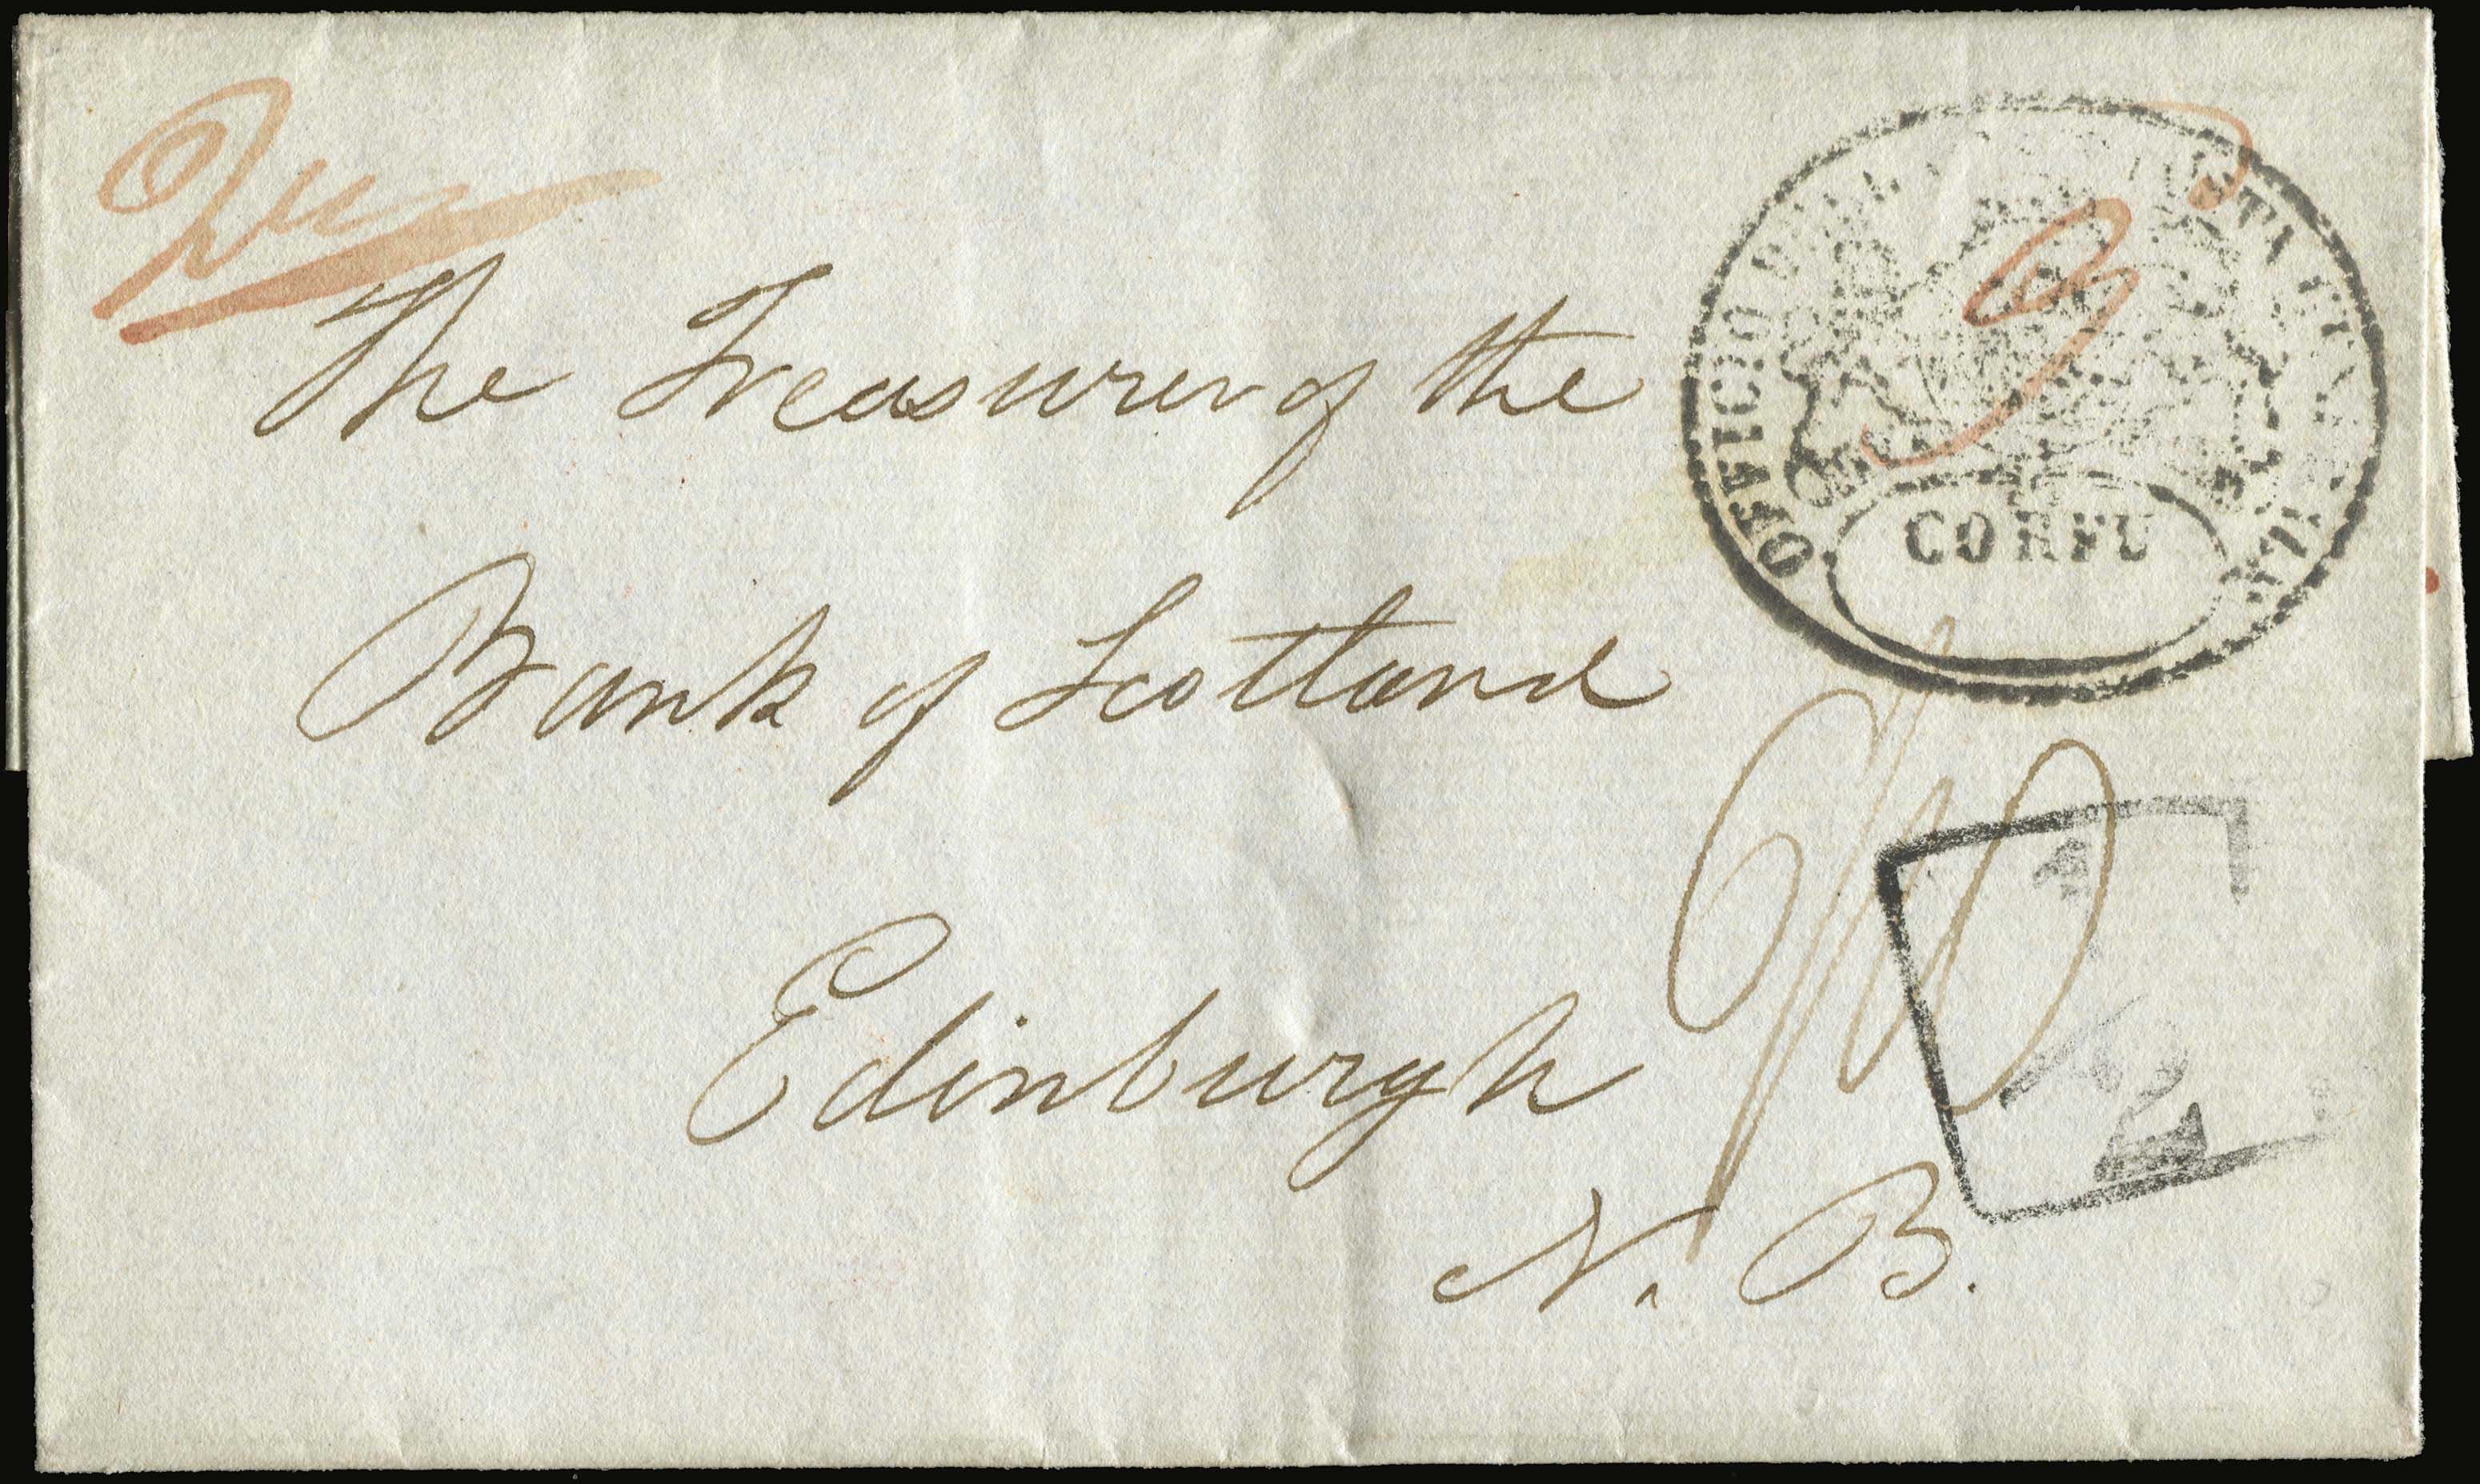 The Treasurer of the
Bank of Scotland
Edinburgh
N. B.
OFFICIO
CORFU
9
1
½